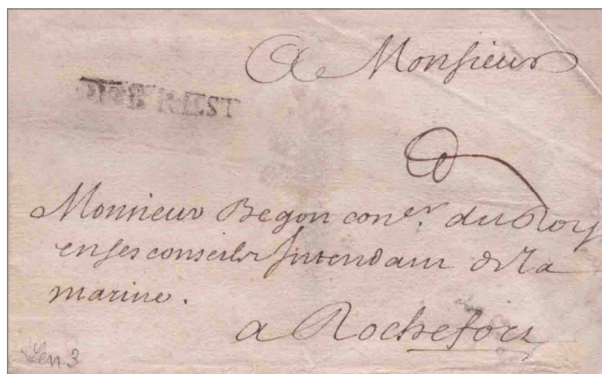 A Monsieur
DE BREST
Monsieur Begon con.er du Roy
en ses conseils Intendant de la
marine.
a Rochefort
Len. 3